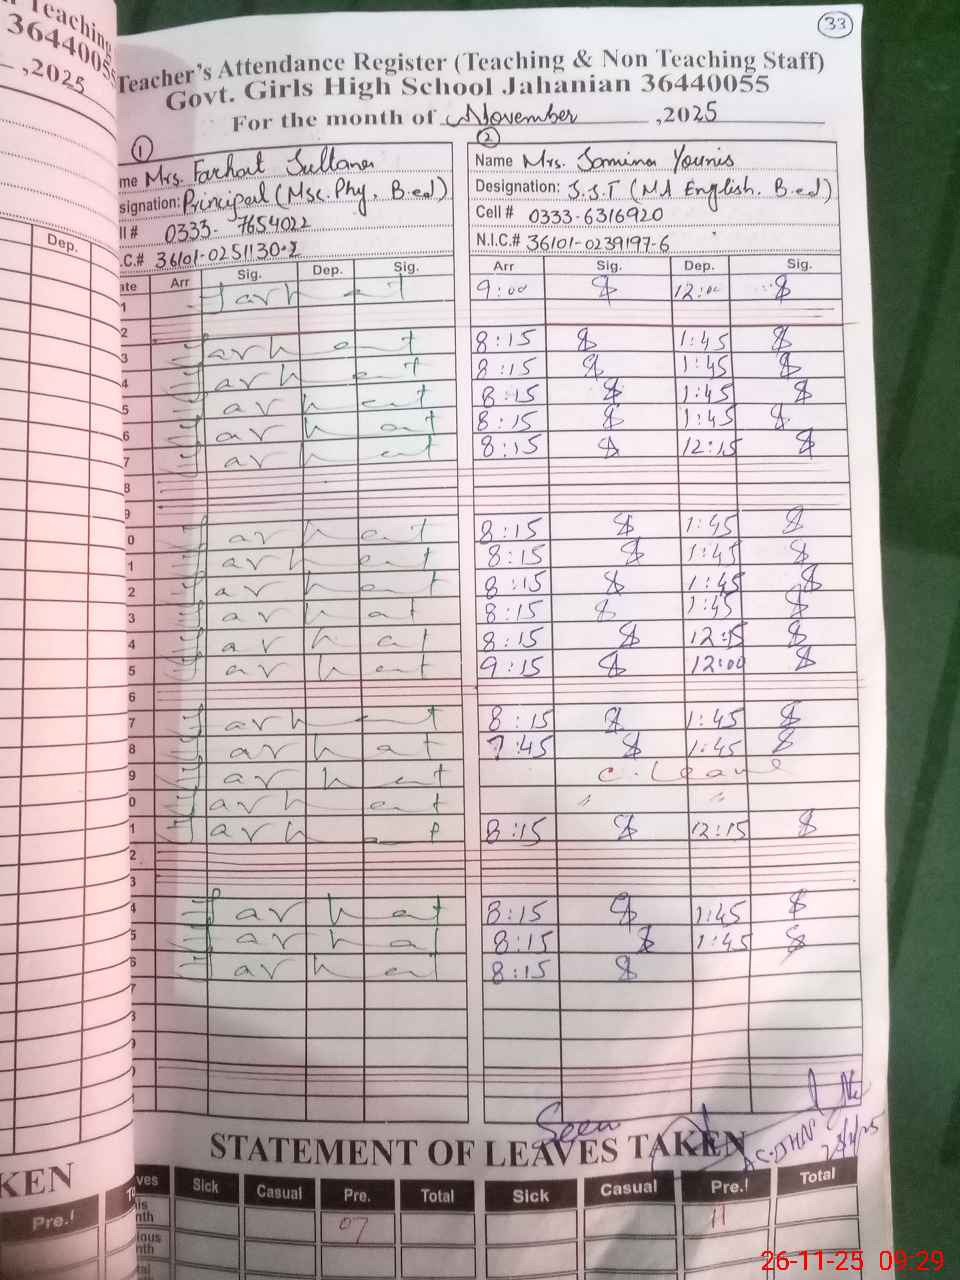 Teaching
36440055
,2025
Dep.
33
Teacher's Attendance Register (Teaching & Non Teaching Staff)
Govt. Girls High School Jahanian 36440055
For the month of November ,2025
1
me Mrs. Farhat Sultana
signation: Principal (Msc. Phy, B.ed)
ll # 0333- 7654022
.C.# 36101-0251130-2
ate Arr Sig. Dep. Sig.
1 Farhat
2
3 Farhat
4 Farhat
5 Farhat
6 Farhat
7 Farhat
8
9
0 Farhat
1 Farhat
2 Farhat
3 Farhat
4 Farhat
5 Farhat
6
7 Farhat
8 Farhat
9 Farhat
0 Farhat
1 Farhat
2
3
4 Farhat
5 Farhat
6 Farhat
7
2
Name Mrs. Samina Younis
Designation: S.S.T (MA English. B.ed)
Cell # 0333-6316920
N.I.C.# 36101-0239197-6
Arr Sig. Dep. Sig.
9:00 12:00
8:15 1:45
8:15 1:45
8:15 1:45
8:15 1:45
8:15 12:15
8:15 1:45
8:15 1:45
8:15 1:45
8:15 1:45
8:15 12:15
9:15 12:00
8:15 1:45
7:45 1:45
C. Leave
〃 〃
8:15 12:15
8:15 1:45
8:15 1:45
8:15
Seen
STATEMENT OF LEAVES TAKEN
KEN
Pre.!
ves Sick Casual Pre. Total Sick Casual Pre.! Total
is
nth 07 11
ious
nth
26-11-25 09:29